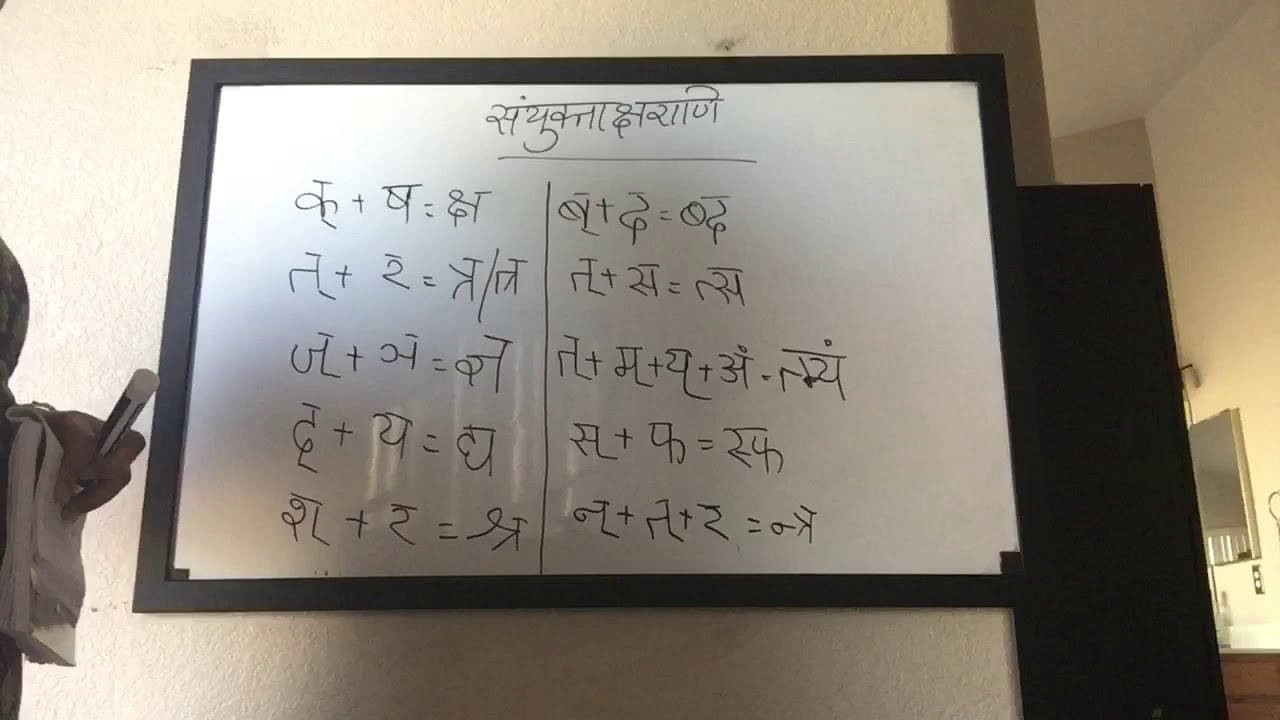 संयुक्ताक्षराणि
क् + ष = क्ष
त् + र = त्र/त्र
ज् + ञ = ज्ञ
द् + य = द्य
श् + र = श्र
ब् + द = ब्द
त् + स = त्स
त् + म् + य् + अं - त्म्यं
स् + फ = स्फ
न् + त् + र = न्त्र